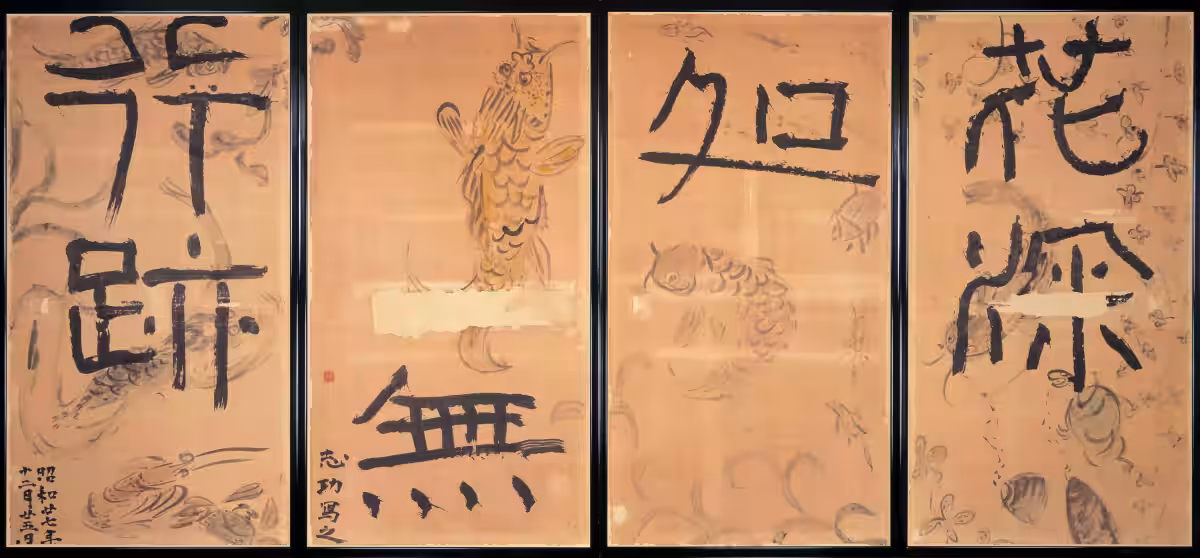 花深
処
無
志功写之
行跡
昭和廿七年
十二月廿五日